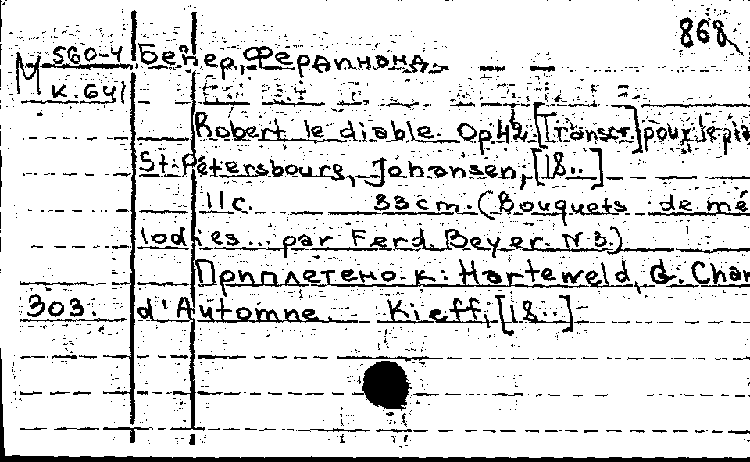 868
М 560-4 Бейер, Фердинанд.
К.641
Robert le diable. Op. 42. [Transcr] pour le pia
St.-Pétersbourg, Johansen, [18..]
11 с. 33 cm. (Bouquets de mé
lodies... par Ferd. Beyer. N 3.)
Приплетено к: Harteveld, G. Chan
303. d'Automne. Kieff, [18..]